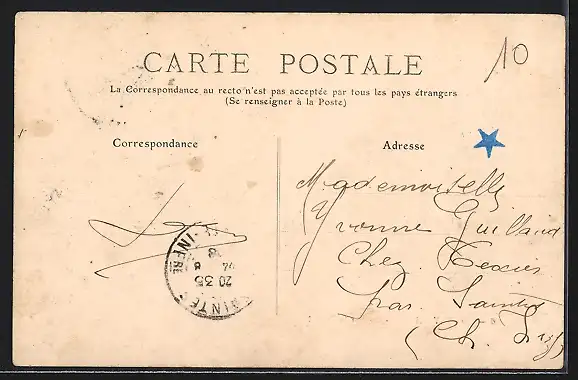 10
CARTE POSTALE
La Correspondance au recto n'est pas acceptée par tous les pays étrangers
(Se renseigner à la Poste)
Correspondance
Adresse
Mademoiselle
Yvonne Guilland
Chez
INFRE
20 35
(Ch. Inf)